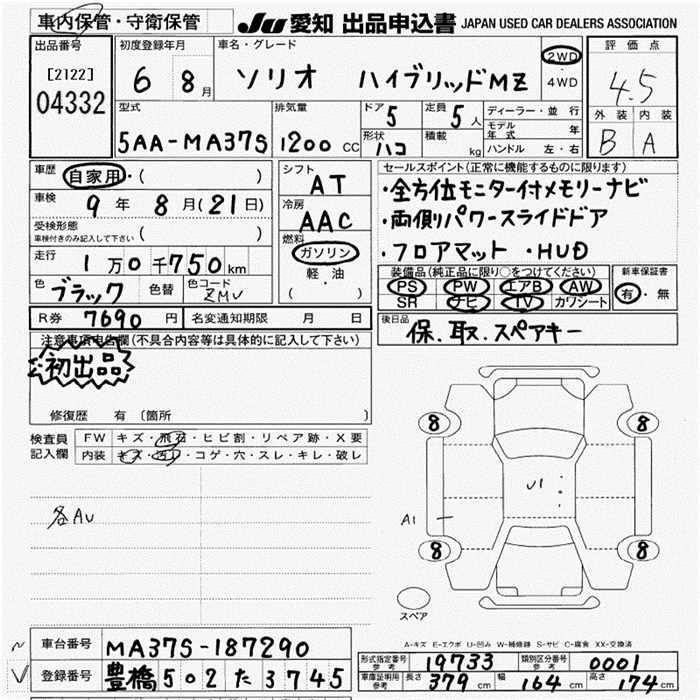 車内保管・守衛保管
JU 愛知 出品申込書 JAPAN USED CAR DEALERS ASSOCIATION
出品番号
[2122]
04332
初度登録年月
6 8 月
車名・グレード
ソリオ ハイブリッドMZ
2WD
・
4WD
評価点
4.5
外装 内装
B A
型式
5AA-MA37S
排気量
1200 CC
ドア 5
形状 ハコ
定員 5 人
積載 kg
ディーラー・並行
モデル年式 年
ハンドル 左・右
車歴 自家用・( )
車検 9 年 8 月(21日)
受検形態
車検付きのみ記入して下さい ( )
走行 1 万 0 千 750 km
色 ブラック 色替 色コード ZMV
シフト
AT
冷房
AAC
燃料
ガソリン
軽・油
( ・ )
セールスポイント(正常に機能するものに限ります)
・全方位モニター付メモリーナビ
・両側パワースライドドア
・フロアマット ・HUD
装備品(純正品に限り○をつけてください)
PS PW エアB AW
SR ナビ TV カワシート
新車保証書
有・無
R券 7690 円 名変通知期限 月 日
後日品
保、取、スペアキー
注意事項申告欄(不具合内容等は具体的に記入して下さい)
初出品
修復歴 有 〔箇所 〕
検査員
記入欄
FW キズ・飛石・ヒビ割・リペア跡・X要
内装 キズ・汚レ・コゲ・穴・スレ・キレ・破レ
各AU
8 8
U1
A1
8 8
スペア
A-キズ E-エクボ U-凹み W-補修跡 S-サビ C-腐食 XX-交換済
車台番号 MA37S-187290
登録番号 豊橋 502 た 3745
形式指定番号 参考 19733 類別区分番号 参考 0001
車庫証明用 参考 長さ 379 cm 幅 164 cm 高さ 174 cm